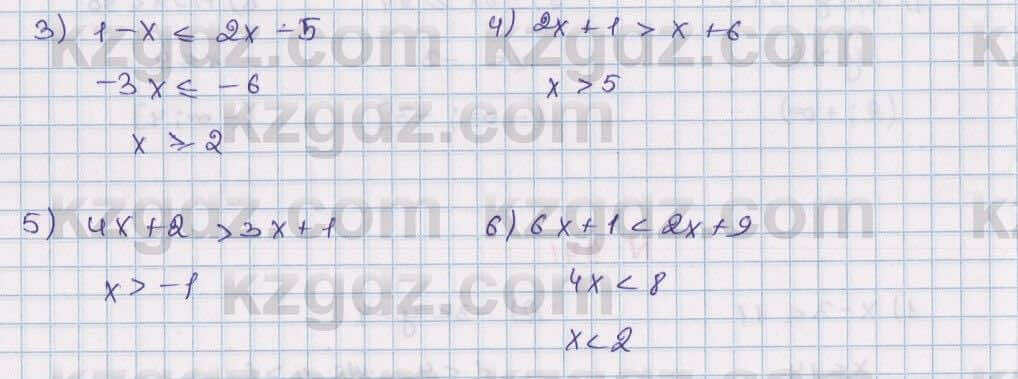 3) 1 - x ≤ 2x - 5
-3x ≤ -6
x ≥ 2
4) 2x + 1 > x + 6
x > 5
5) 4x + 2 > 3x + 1
x > -1
6) 6x + 1 < 2x + 9
4x < 8
x < 2
kzgdz.com
kzgdz.com
kzgdz.com
kzgdz.com
kzgdz.com
kzgdz.com